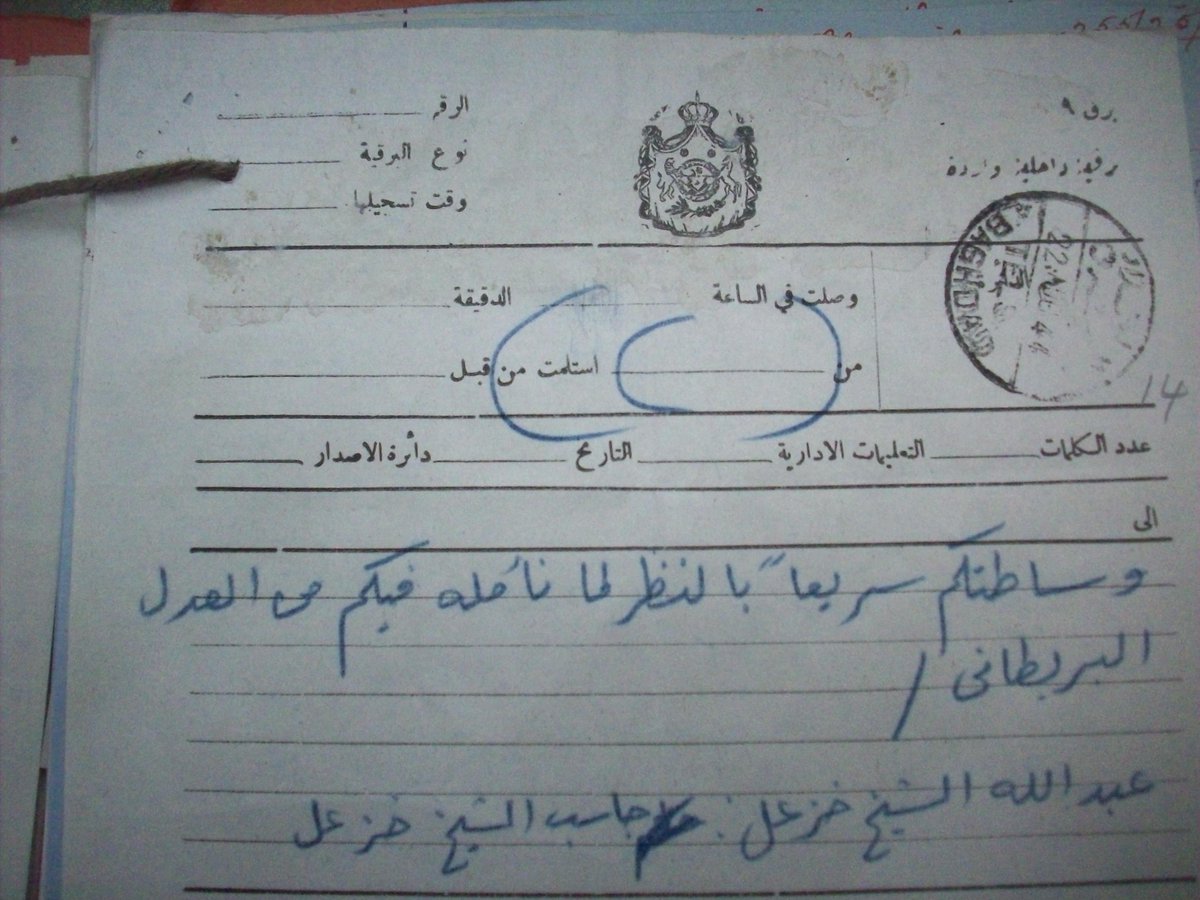 برق ٩
برقية داخلية واردة
الرقم
نوع البرقية
وقت تسجيلها
BAGHDAD
22 AUG 44
14
وصلت في الساعة الدقيقة
من استلمت من قبل
عدد الكلمات التعليمات الادارية التاريخ دائرة الاصدار
الى
وساطتكم سريعاً بالنظر لما نأمله فيكم من العدل
البريطاني /
عبدالله الشيخ خزعل : جاسب الشيخ خزعل